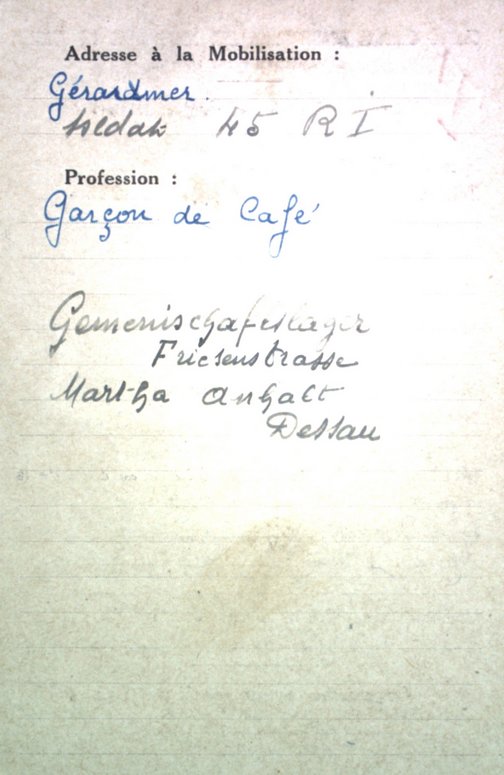 Adresse à la Mobilisation :
Gérardmer.
soldat 45 R I
Profession :
Garçon de Café
Gemenischafeslager
Friesenstrasse
Martha Anhalt
Dessau